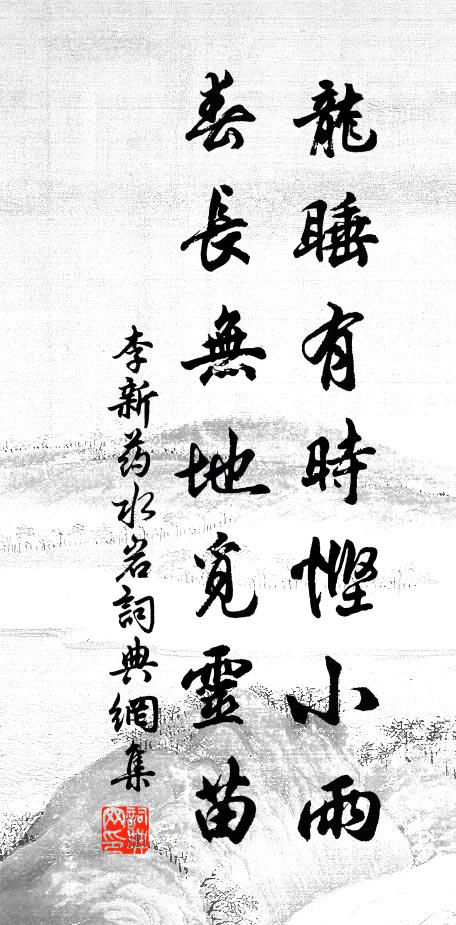 龍睡有時慳小雨
春長無地覓靈苗
李新药水岩詞典網集